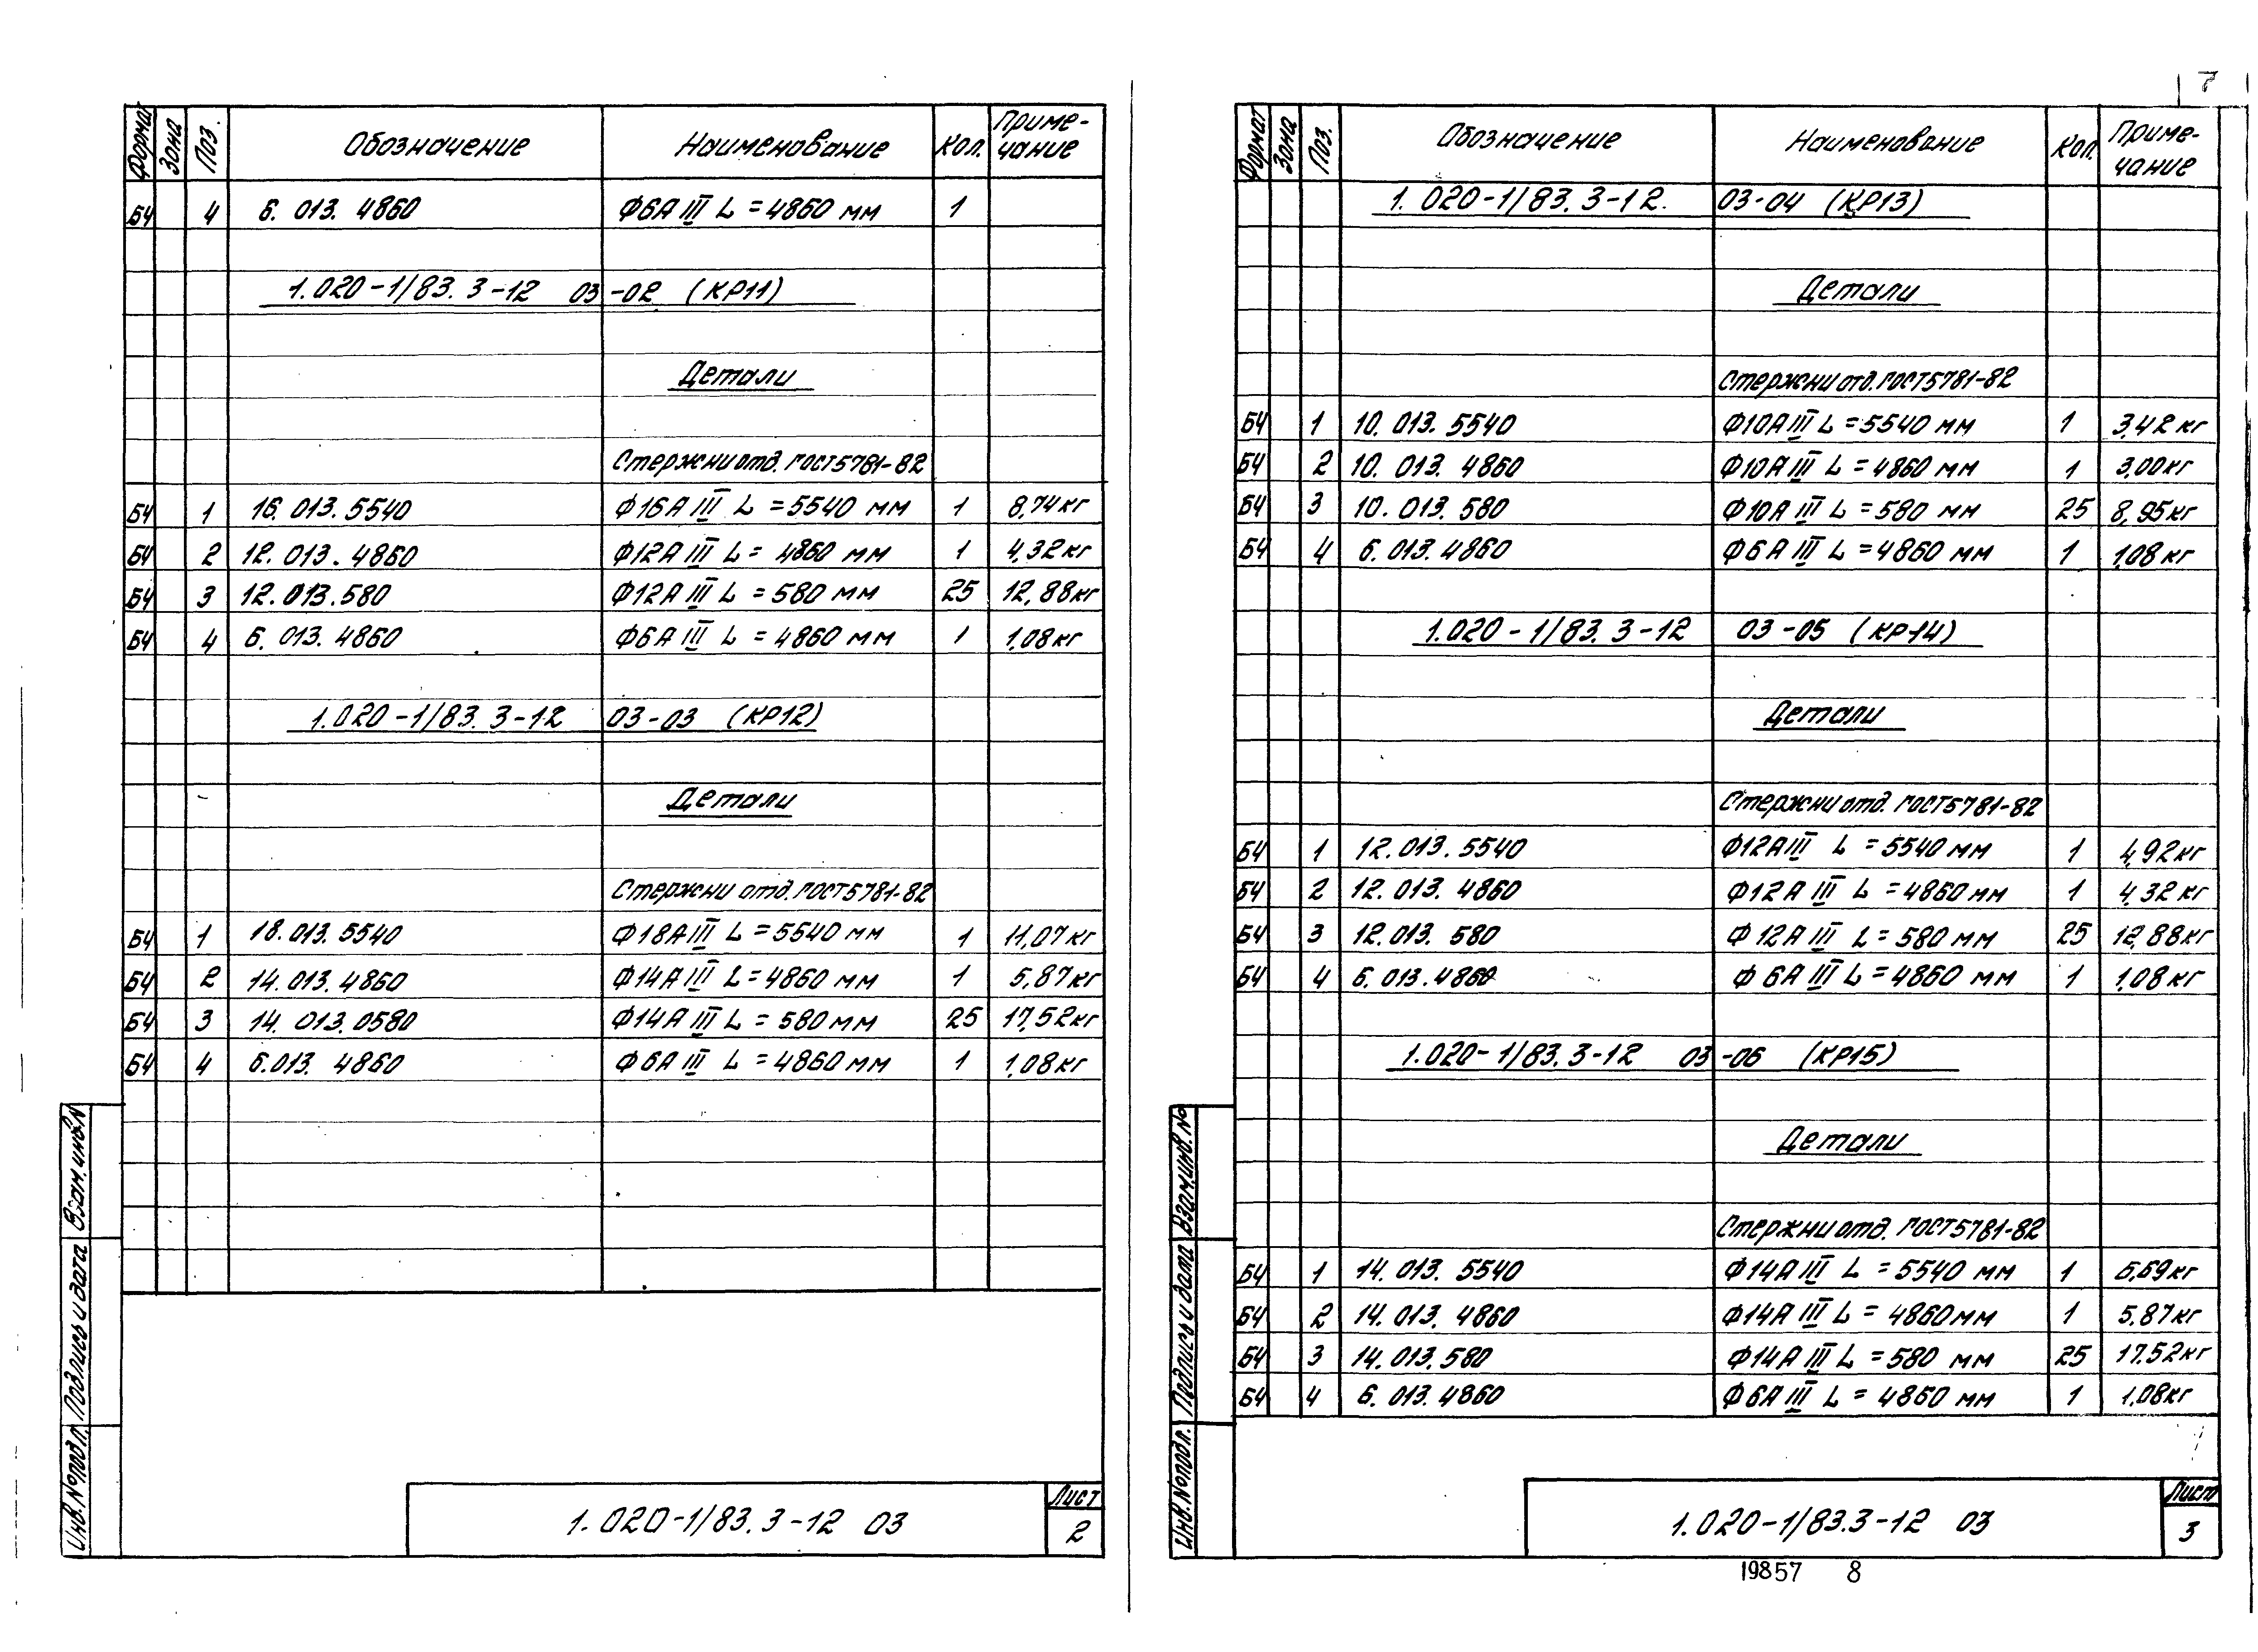 Формат Зона Поз. Обозначение Наименование Кол. Приме-чание
БЧ 4 6. 013. 4860 Ф6А III L = 4860 мм 1
1.020-1/83. 3-12 03-02 (КР11)
Детали
Стержни отд. ГОСТ 5781-82
БЧ 1 16. 013. 5540 Ф16А III L = 5540 мм 1 8,74 кг
БЧ 2 12. 013. 4860 Ф12А III L = 4860 мм 1 4,32 кг
БЧ 3 12. 013. 580 Ф12А III L = 580 мм 25 12,88 кг
БЧ 4 6. 013. 4860 Ф6А III L = 4860 мм 1 1,08 кг
1.020-1/83. 3-12 03-03 (КР12)
Детали
Стержни отд. ГОСТ 5781-82
БЧ 1 18. 013. 5540 Ф18А III L = 5540 мм 1 11,07 кг
БЧ 2 14. 013. 4860 Ф14А III L = 4860 мм 1 5,87 кг
БЧ 3 14. 013. 0580 Ф14А III L = 580 мм 25 17,52 кг
БЧ 4 6.013. 4860 Ф6А III L = 4860 мм 1 1,08 кг
Инв. № подл. Подпись и дата Взам. инв. N
1.020-1/83.3-12 03
Лист
2
7
Формат Зона Поз. Обозначение Наименование Кол. Приме-чание
1. 020-1/83. 3-12. 03-04 (КР13)
Детали
Стержни отд. ГОСТ 5781-82
БЧ 1 10. 013. 5540 Ф10А III L = 5540 мм 1 3,42 кг
БЧ 2 10. 013. 4860 Ф10А III L = 4860 мм 1 3,00 кг
БЧ 3 10. 013. 580 Ф10А III L = 580 мм 25 8,95 кг
БЧ 4 6. 013. 4860 Ф6А III L = 4860 мм 1 1,08 кг
1.020-1/83. 3-12 03-05 (КР14)
Детали
Стержни отд. ГОСТ 5781-82
БЧ 1 12. 013. 5540 Ф12А III L = 5540 мм 1 4,92 кг
БЧ 2 12. 013. 4860 Ф12А III L = 4860 мм 1 4,32 кг
БЧ 3 12. 013. 580 Ф12А III L = 580 мм 25 12,88 кг
БЧ 4 6. 013. 4860 Ф6А III L = 4860 мм 1 1,08 кг
1.020-1/83. 3-12 03-06 (КР15)
Детали
Стержни отд. ГОСТ 5781-82
БЧ 1 14. 013. 5540 Ф14А III L = 5540 мм 1 6,69 кг
БЧ 2 14. 013. 4860 Ф14А III L = 4860 мм 1 5,87 кг
БЧ 3 14. 013. 580 Ф14А III L = 580 мм 25 17.52 кг
БЧ 4 6. 013. 4860 Ф6А III L = 4860 мм 1 1,08 кг
Инв. № подл. Подпись и дата Взам. инв. №
1.020-1/83.3-12 03
Лист
3
19857 8